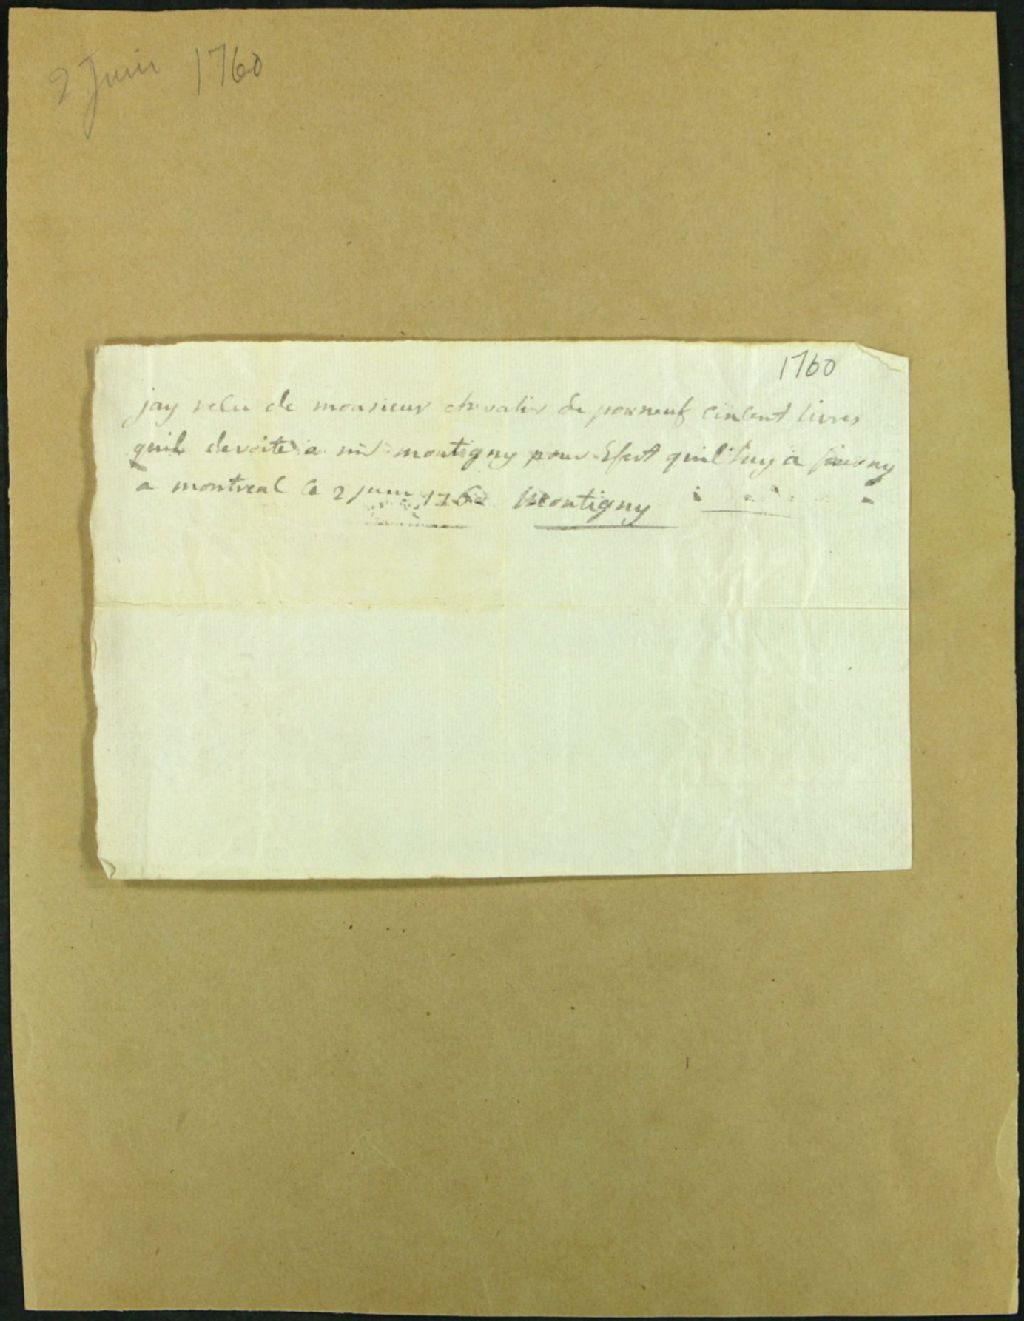 2 Juin 1760
1760
jay recu de monsieur chevalier de porneuf cincent livres
quil devoite a mr montigny pour Efect quil luy a fourny
a montreal le 2 juin 1760 Montigny